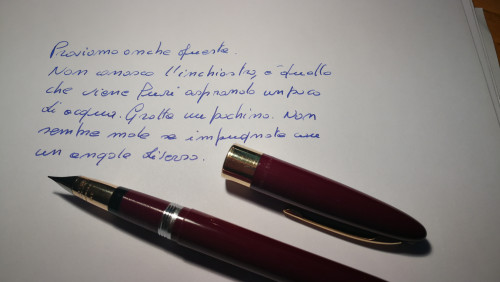 Proviamo anche questa.
Non conosco l'inchiostro, è quello
che viene fuori aspirando un poco
di acqua. Gratta un pochino. Non
sembra male se impugnata con
un angolo diverso.